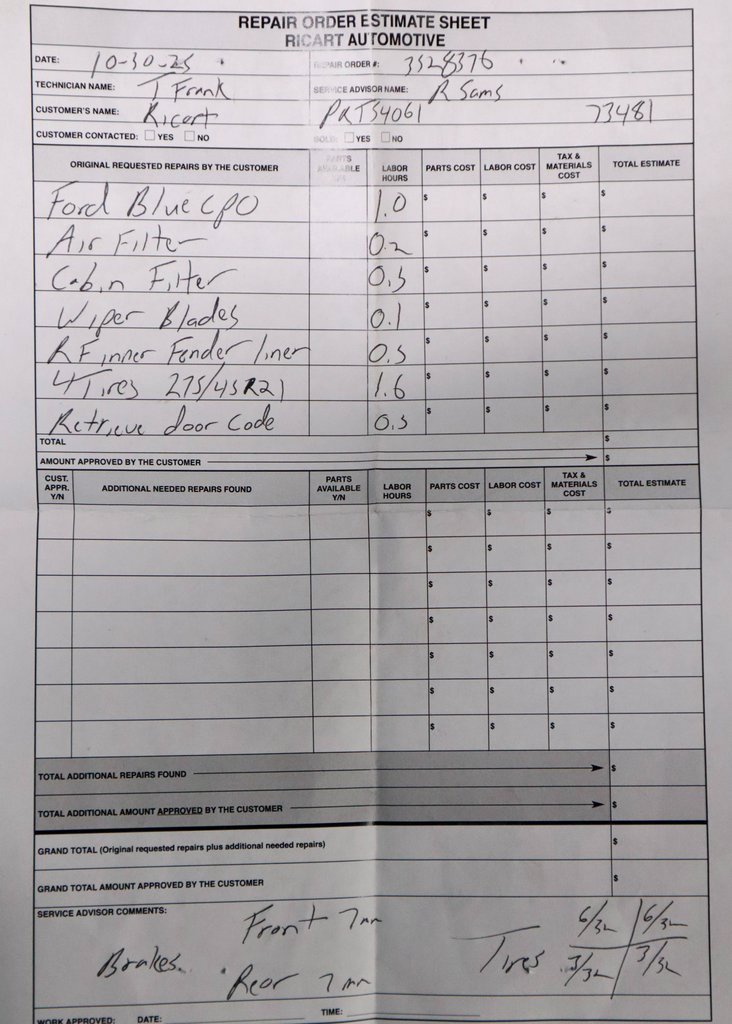 REPAIR ORDER ESTIMATE SHEET
RICART AUTOMOTIVE
DATE: 10-30-25 REPAIR ORDER #: 3528376
TECHNICIAN NAME: T Frank SERVICE ADVISOR NAME: R Sams
CUSTOMER'S NAME: Ricart PRTS4061 73481
CUSTOMER CONTACTED: YES NO SOLD: YES NO
ORIGINAL REQUESTED REPAIRS BY THE CUSTOMER PARTS AVAILABLE Y/N LABOR HOURS PARTS COST LABOR COST TAX & MATERIALS COST TOTAL ESTIMATE
Ford Blue CPO 1.0 $ $ $ $
Air Filter 0.2 $ $ $ $
Cabin Filter 0.3 $ $ $ $
Wiper Blades 0.1 $ $ $ $
RF inner Fender liner 0.5 $ $ $ $
4 Tires 275/45R21 1.6 $ $ $ $
Retrieve door Code 0.3 $ $ $ $
TOTAL $
AMOUNT APPROVED BY THE CUSTOMER $
CUST. APPR. Y/N ADDITIONAL NEEDED REPAIRS FOUND PARTS AVAILABLE Y/N LABOR HOURS PARTS COST LABOR COST TAX & MATERIALS COST TOTAL ESTIMATE
$ $ $ $
$ $ $ $
$ $ $ $
$ $ $ $
$ $ $ $
$ $ $ $
$ $ $ $
TOTAL ADDITIONAL REPAIRS FOUND $
TOTAL ADDITIONAL AMOUNT APPROVED BY THE CUSTOMER $
GRAND TOTAL (Original requested repairs plus additional needed repairs) $
GRAND TOTAL AMOUNT APPROVED BY THE CUSTOMER $
SERVICE ADVISOR COMMENTS:
Front 7mm 6/32 6/32
Brakes Tires
Rear 7mm 3/32 3/32
WORK APPROVED: DATE: TIME: